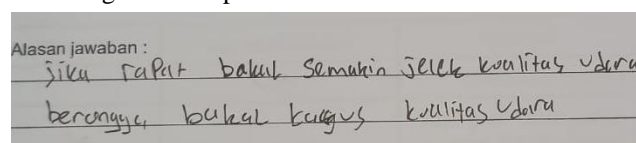 Alasan jawaban :
jika rapat bakal semakin jelek kualitas udara
berongga bakal bagus kualitas udara